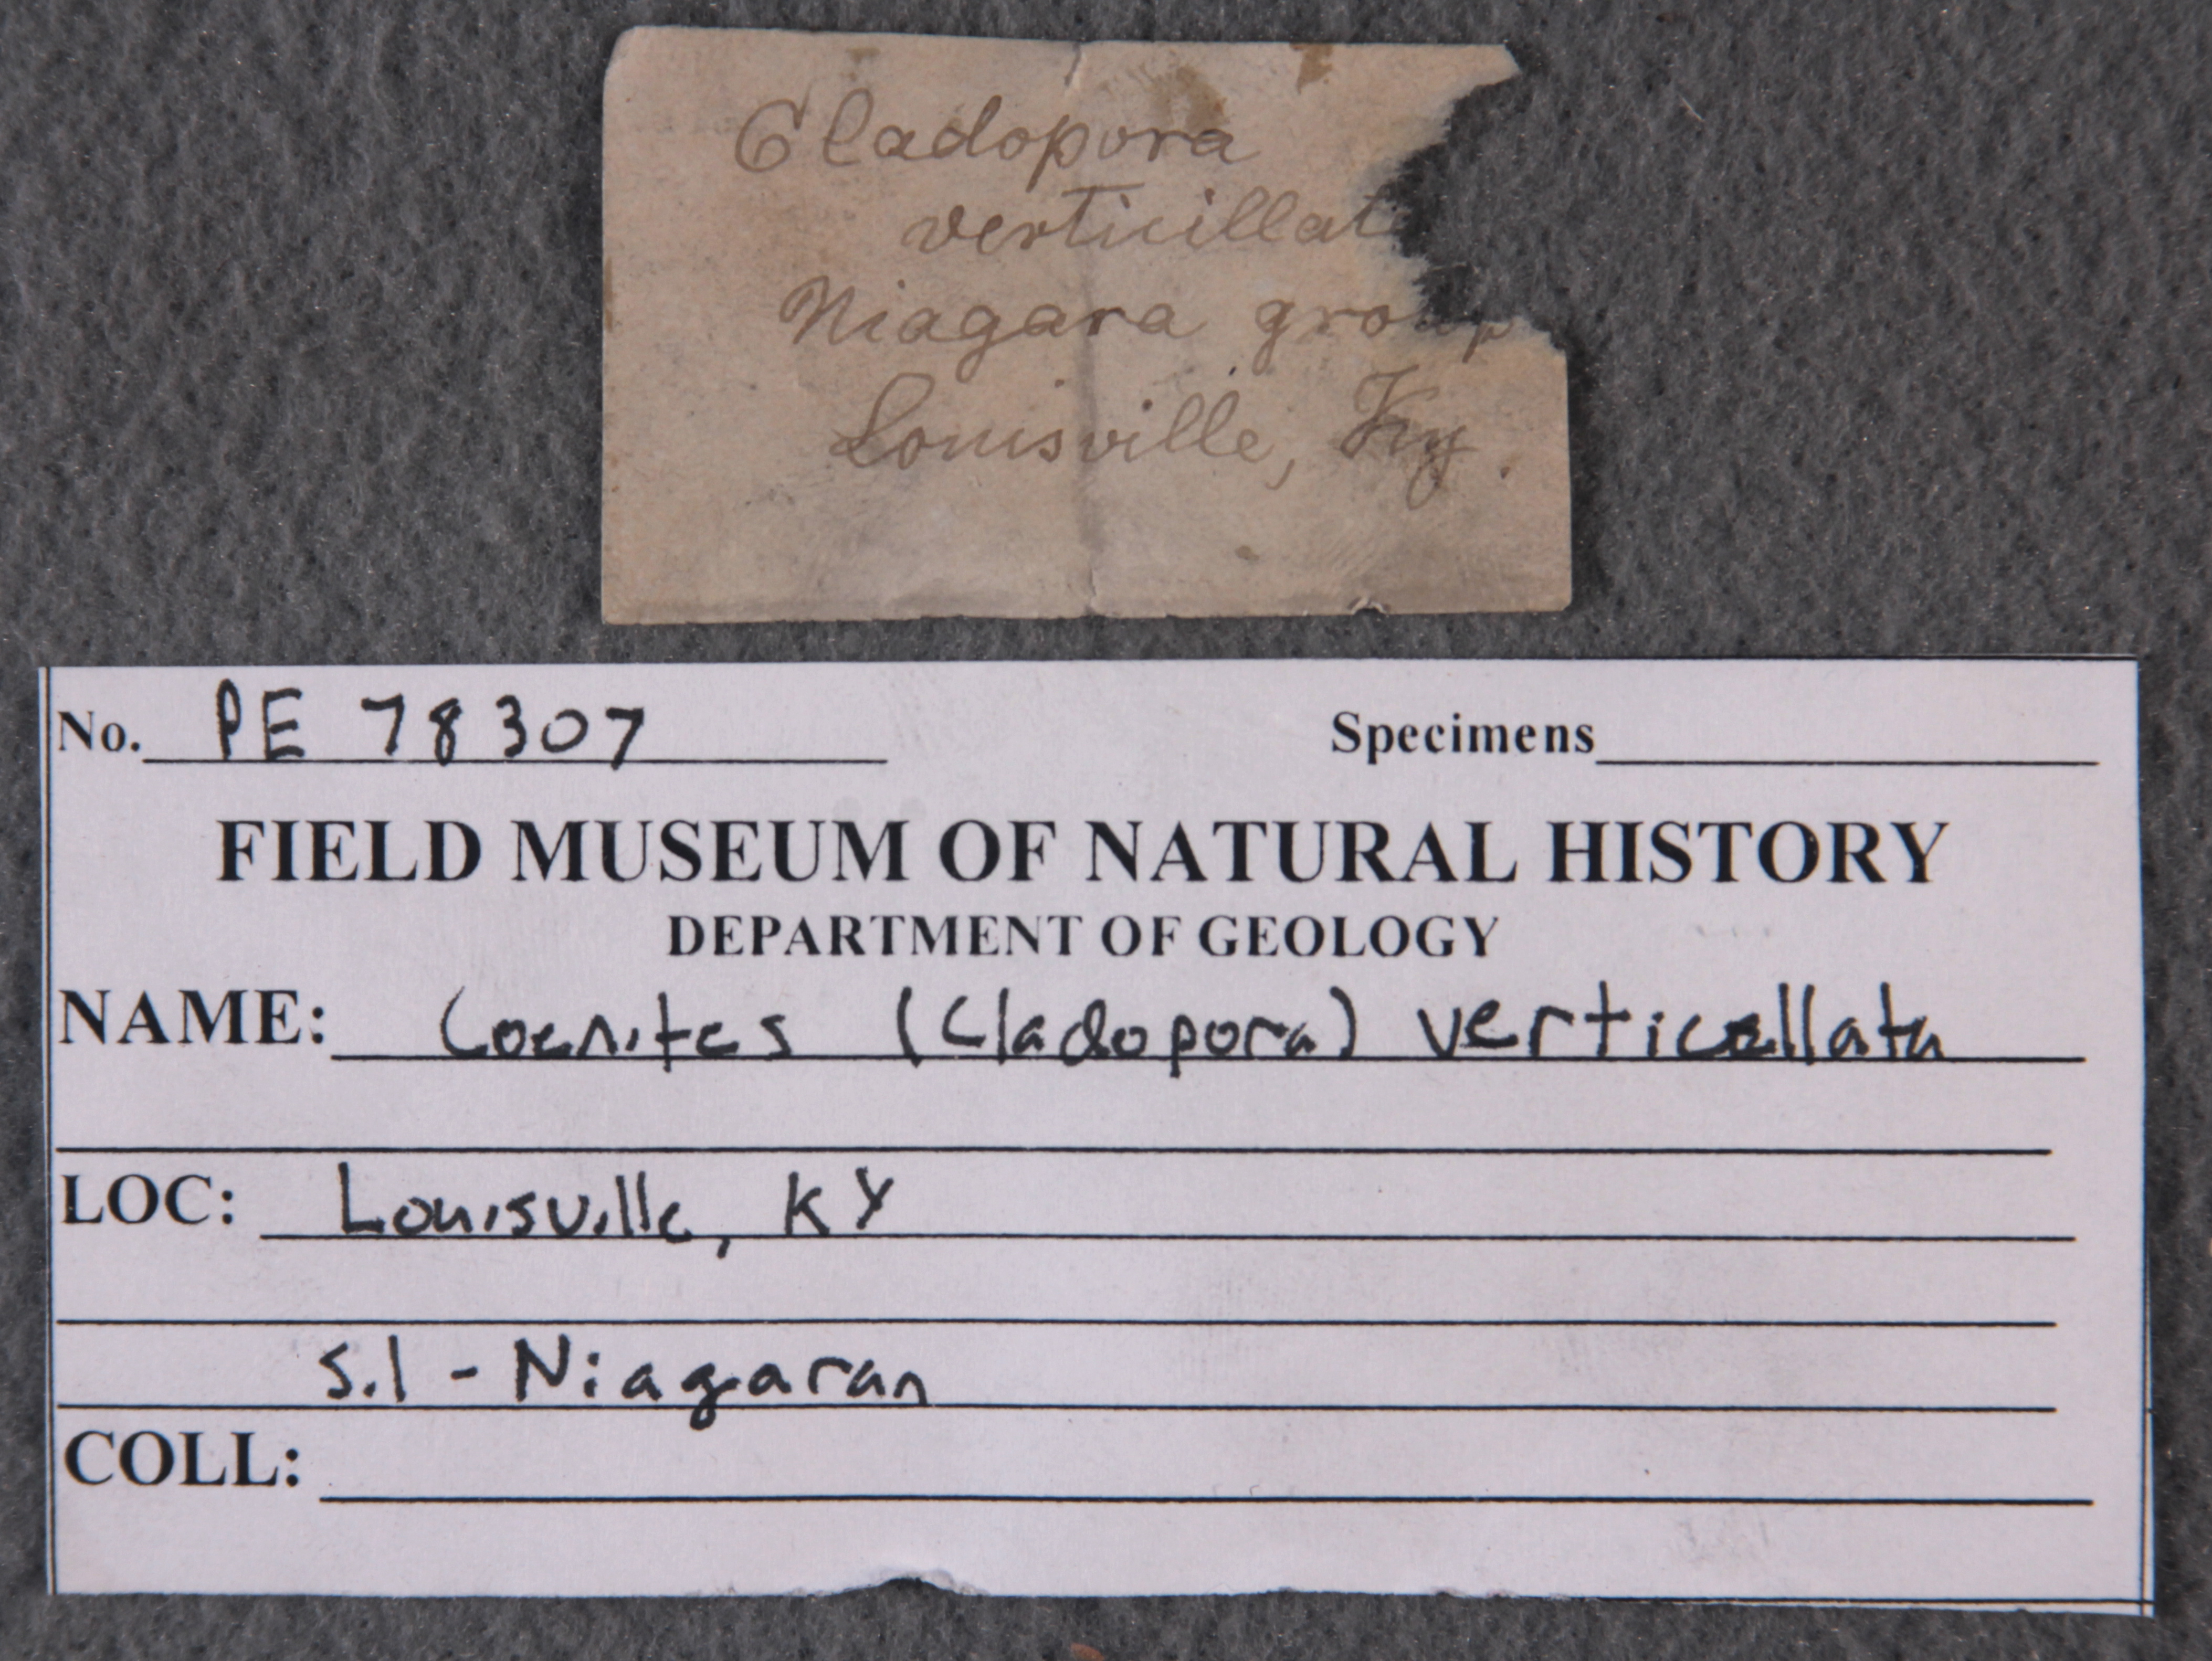 Cladopora
verticillat
Niagara group
Louisville, Ky.
No. PE 78307 Specimens
FIELD MUSEUM OF NATURAL HISTORY
DEPARTMENT OF GEOLOGY
NAME: Coenites (Cladopora) verticellata
LOC: Louisville, KY
Sil - Niagaran
COLL: